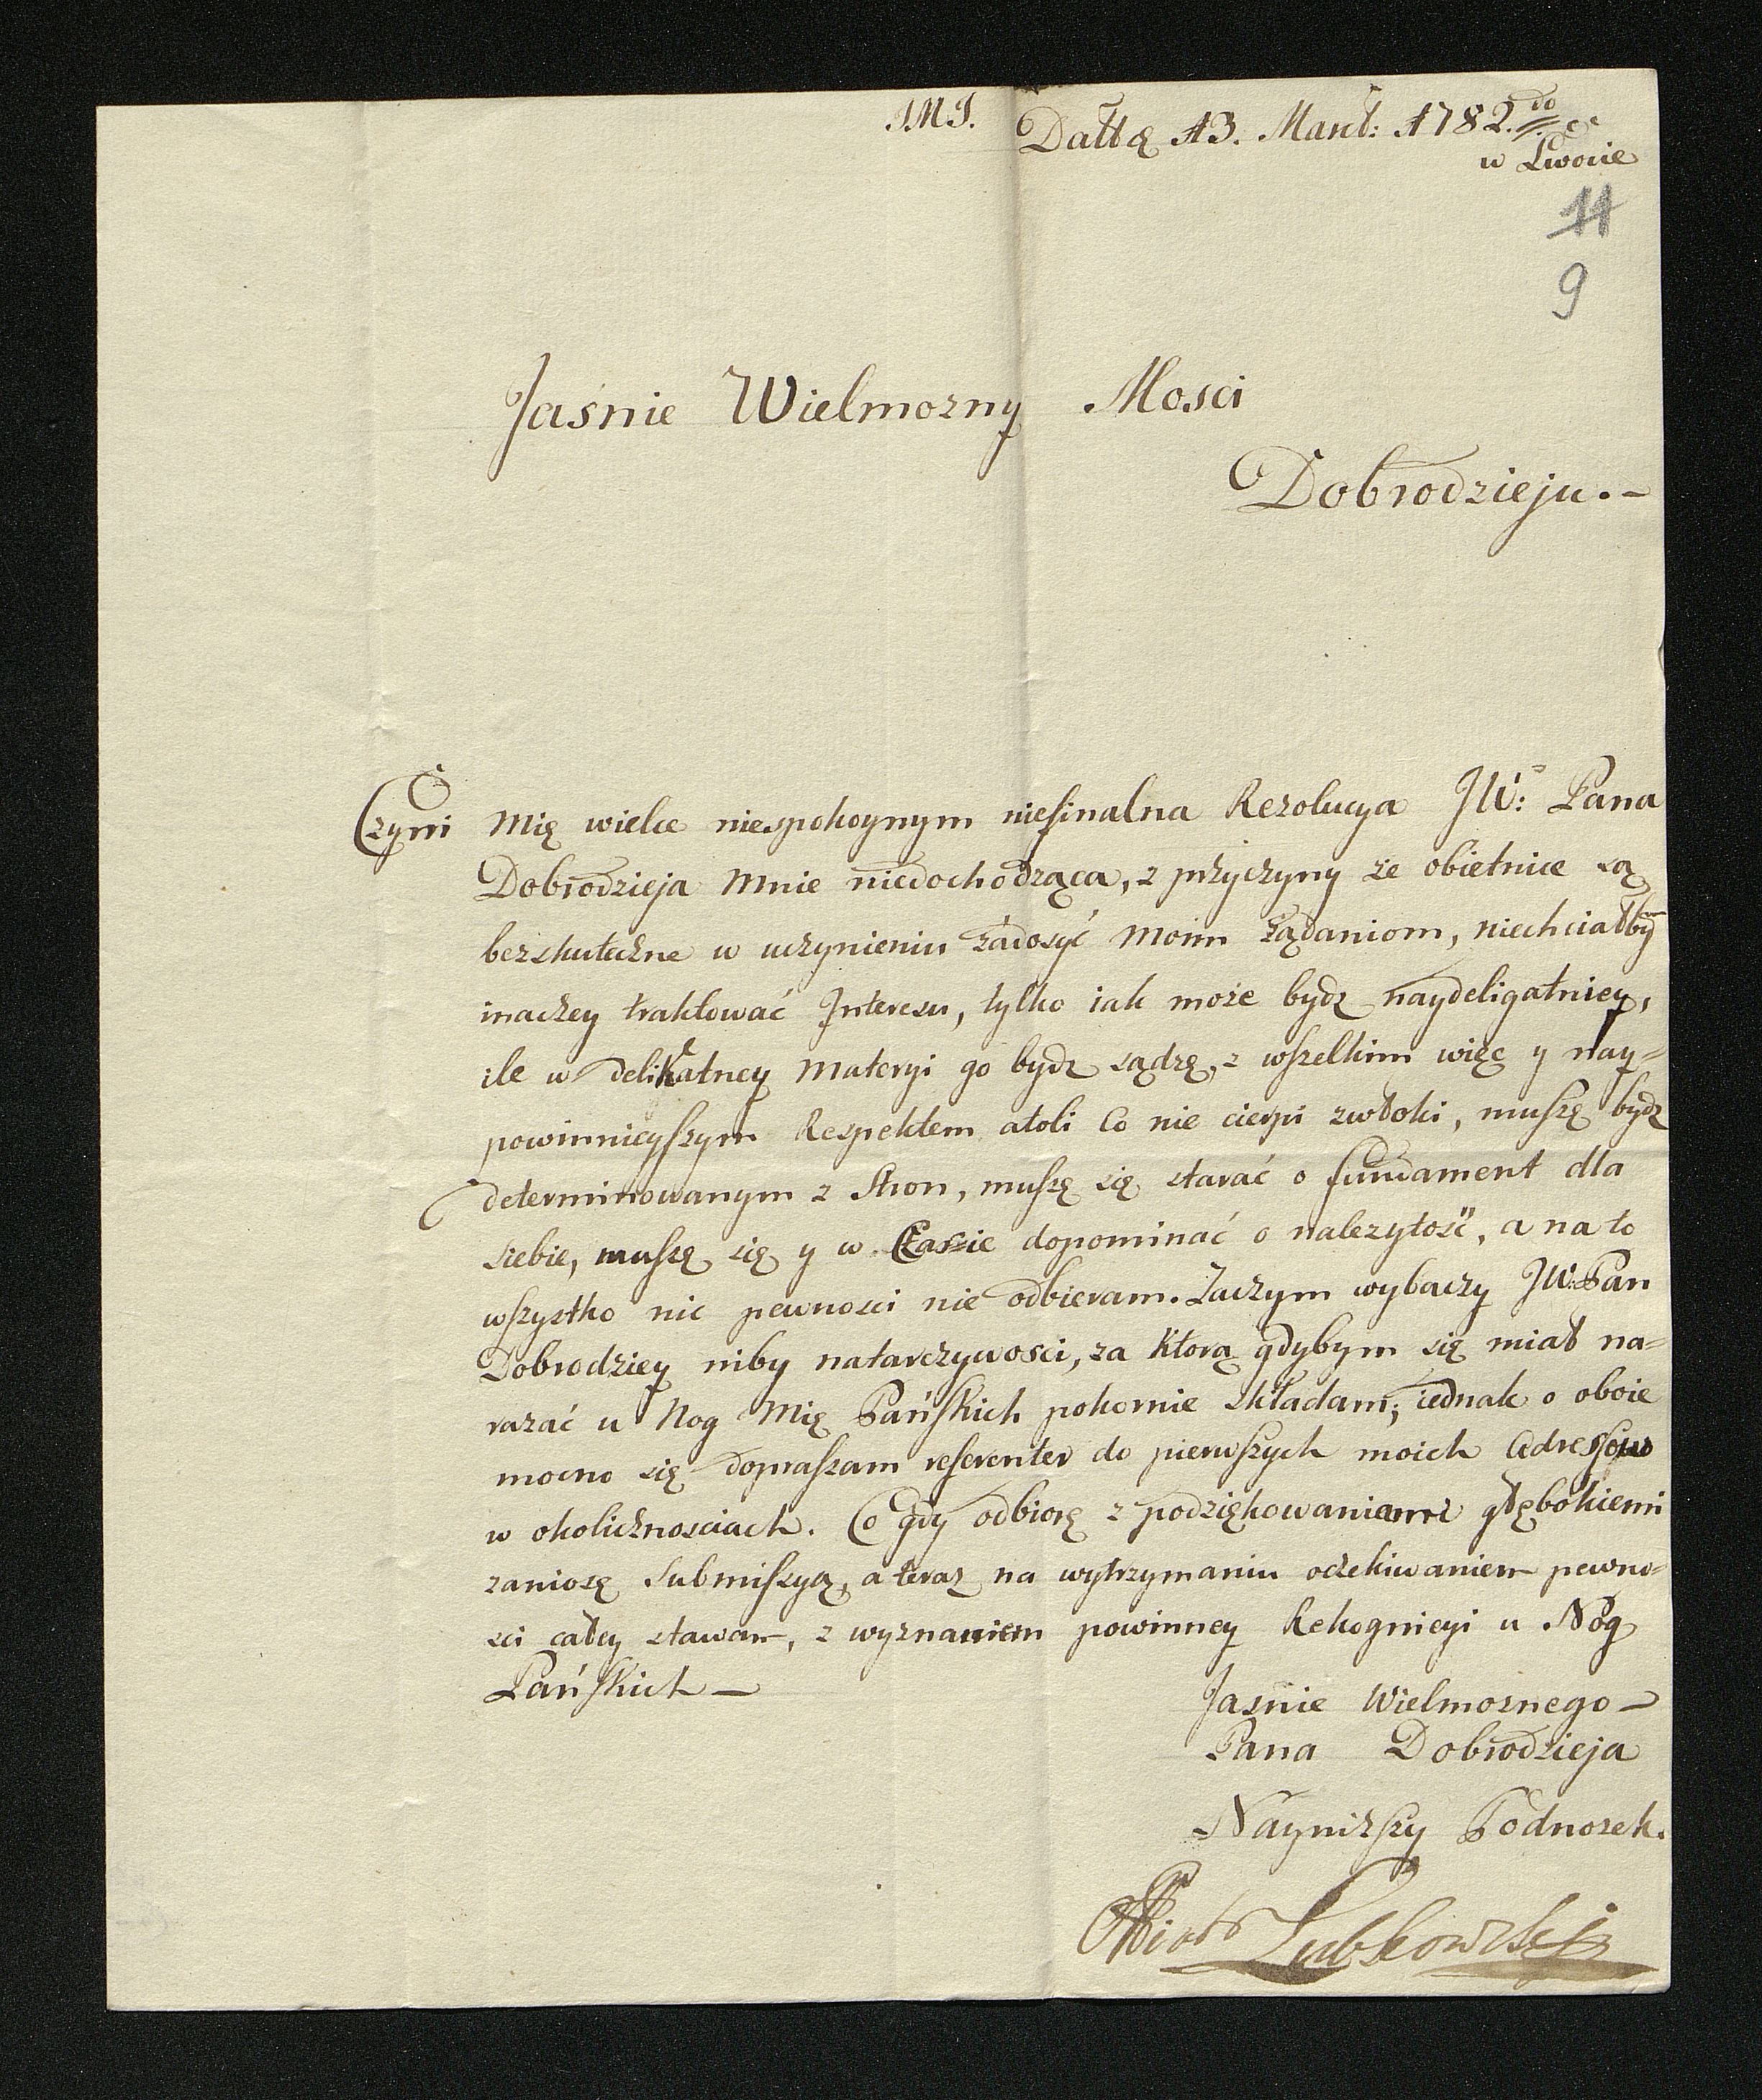 J.M.J. Dattą 13. Mart: 1782.do
w Lwowie
11
9
Jaśnie Wielmozny Mosci
Dobrodzieju.-
Czyni Mię wielce niespokoynym niefinalna Rezolucya JW: Pana
Dobrodzieja Mnie niedochodząca, z przyczyny ze obietnice są
bezskuteczne w uczynieniu zadosyć Moim żądaniom, niechciałbym
inaczey traktować Interesu, tylko iak może bydz naydeligatniey,
ile w delikatney Materyi go bydz sądzę, z wszelkim więc y nay=
powinnieyszym Respektem atoli Co nie cierpi zwłoki, muszę bydz
determinowanym z Stron, muszę się starać o fundament dla
siebie, muszę się y w Czasie dopominać o nalezytość, a na to
wszystko nic pewnosci nie odbieram. Zaczym wybaczy JW: Pan
Dobrodziey niby natarczywosci, za ktorą gdybym się miał na=
razać u Nog Mię Pańskich pokornie składam; iednak o oboie
mocno się dopraszam referenter do pierwszych moich Adressow
w okolicznosciach. Co gdy odbiorę z podziękowaniami głębokiemi
zaniosę Submissyą, a teraz na wytrzymaniu oczekiwaniem pewno=
sci całey stawam, z wyznaniem powinney Rekognicyi u Nog
Pańskich —
Jasnie Wielmoznego —
Pana Dobrodzieja
Nayniższy Podnozek.
Piotr Lubkowski